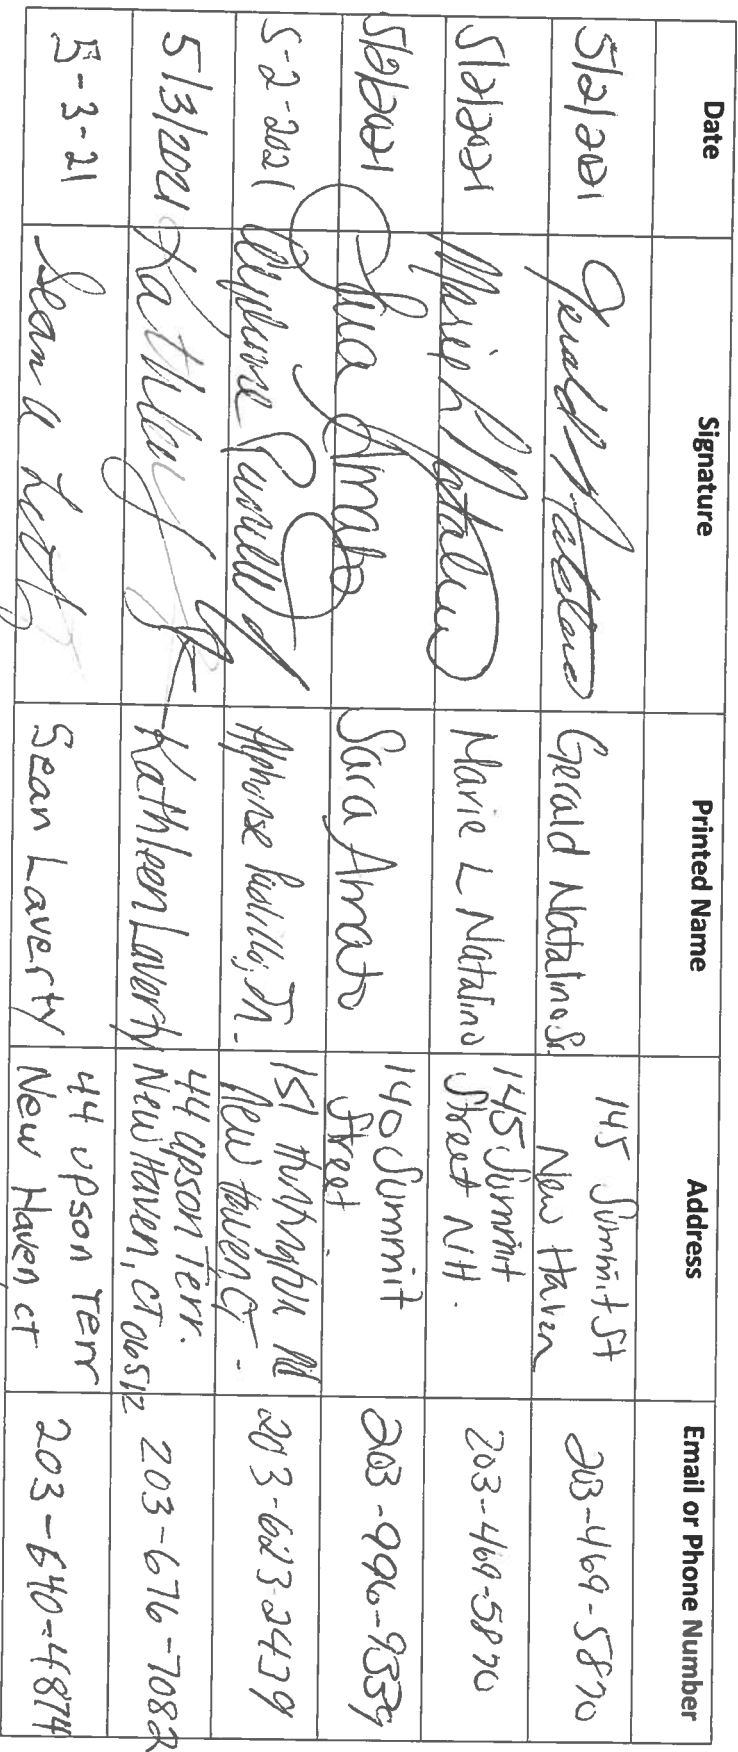 Date Signature Printed Name Address Email or Phone Number
5/2/2021 Gerald Natalino Gerald Natalino Sr. 145 Summit St
New Haven 203-469-5870
5/2/2021 Marie L Natalino Marie L Natalino 145 Summit
Street N.H. 203-469-5870
5/2/2021 Sara Amato Sara Amato 140 Summit
Street 203-996-9559
5-2-2021 Alphonse Jr. 151 Huntington Rd
New Haven, CT - 203-623-2439
5/3/2021 Kathleen Kathleen Laverty 44 Upson Terr.
New Haven, CT 06512 203-676-7082
5-3-21 Sean Sean Laverty 44 Upson Terr
New Haven ct 203-640-4874